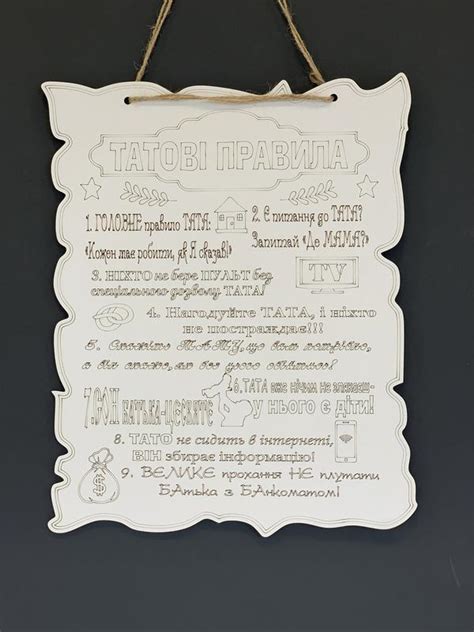 ТАТОВІ ПРАВИЛА
1. ГОЛОВНЕ правило ТАТА:
«Кожен має робити, як Я сказав!»
2. Є питання до ТАТА?
Запитай «Де МАМА?»
3. НІХТО не бере ПУЛЬТ без
спеціального дозволу ТАТА!
TV
4. Нагодуйте ТАТА, і ніхто
не постраждає!!!
5. Скажіть ТАТУ, що вам потрібно,
а він скаже, як без цього обійтись!
6. ТАТА вже нічим не злякаєш-
у нього є діти!
7. СОН батька-це святе
8. ТАТО не сидить в інтернеті,
ВІН збирає інформацію!
9. ВЕЛИКЕ прохання НЕ плутати
БАтька з БАнкоматом!